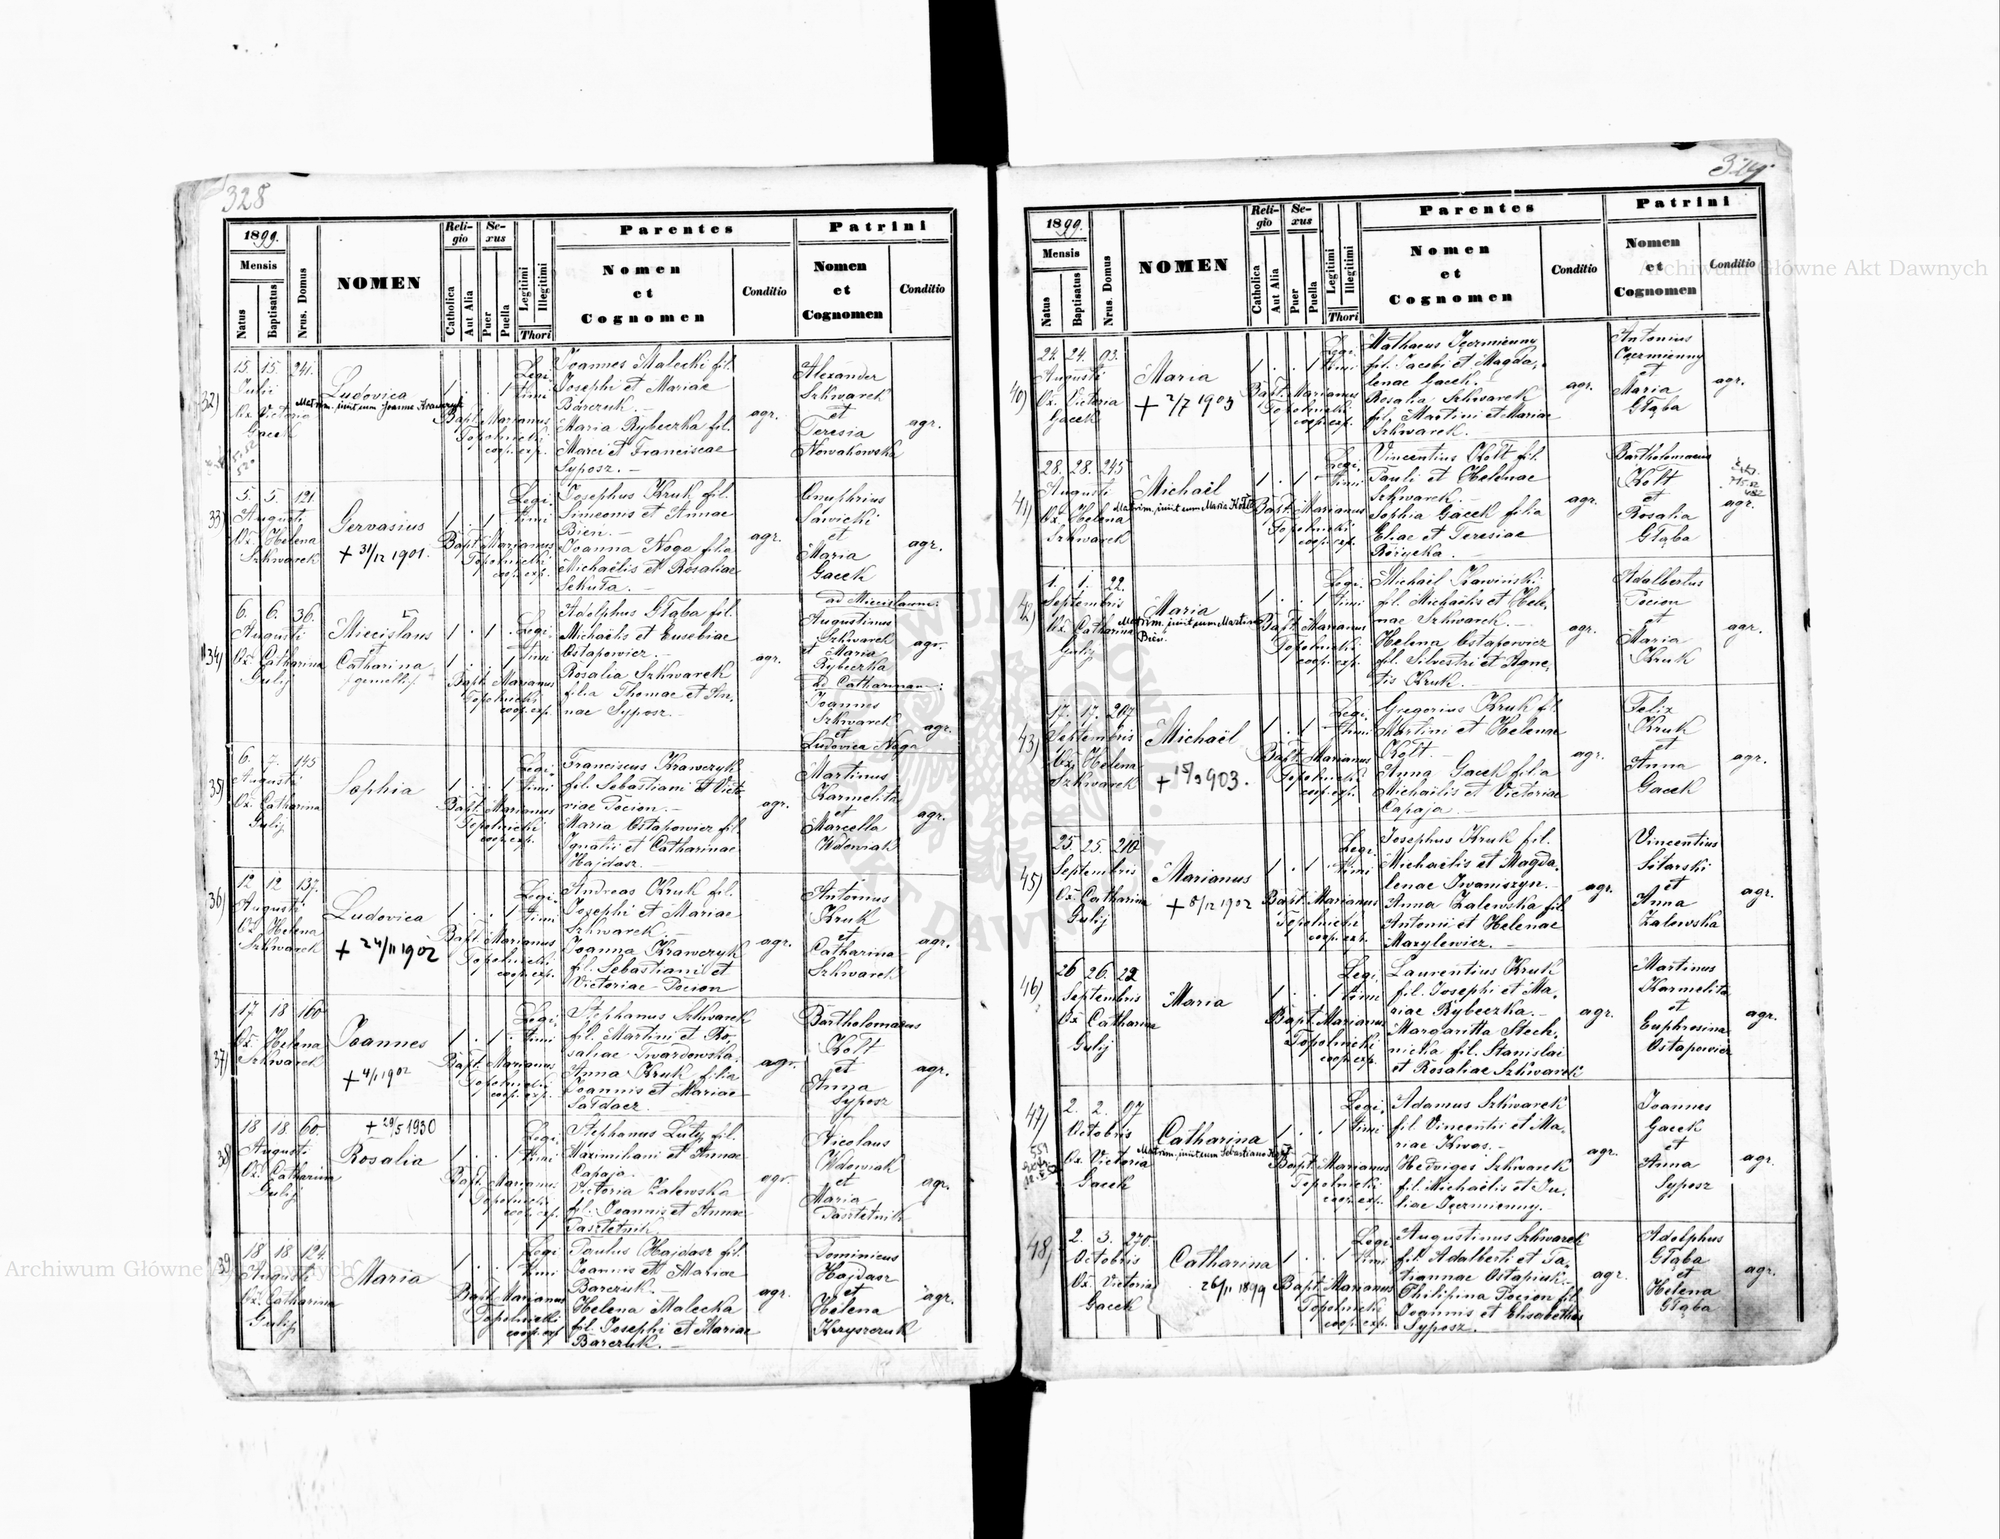 328
1899.
Mensis
Natus
Baptisatus
Nrus. Domus
NOMEN
Religio
Catholica
Aut Alia
Sexus
Puer
Puella
Legitimi
Illegitimi
Thori
Parentes
Nomen
et
Cognomen
Conditio
Patrini
Nomen
et
Cognomen
Conditio
32)
15. 15. 241.
Julii
Ox. Victoria
Gacek
Ludovica
Matrim. junct. cum Joanne Krawczyk
1 . . 1 Legi-
timi
Bapt. Marianus
Topolnicki
coop. exp.
Joannes Malecki fil.
Josephi et Mariae
Barczuk. —
Maria Rybeczka fil.
Marci et Franciscae
Syposz. —
agr.
Alexander
Szkwarek
et
Teresia
Nowakowska
agr.
33)
5. 5. 121
Augusti
Ox. Helena
Szkwarek
Gervasius
+ 31/12 1901.
1 . 1 . Legi-
timi
Bapt. Marianus
Topolnicki
coop. exp.
Josephus Kruk fil.
Simeonis et Annae
Bień. —
Joanna Noga filia
Michaëlis et Rosaliae
Sekuła. —
agr.
Onuphrius
Sawicki
et
Maria
Gacek
agr.
34)
6. 6. 36.
Augusti
Ox. Catharina
Gulij
Miecislaus
et
Catharina
/gemelli/
1 . 1 . Legi-
1 . . 1 timi
Bapt. Marianus
Topolnicki
coop. exp.
Adolphus Głąba fil.
Michaëlis et Eusebiae
Ostapowicz. —
Rosalia Szkwarek
filia Thomae et An-
nae Syposz. —
agr.
ad Miecislaum:
Augustinus
Szkwarek
et Maria
Rybeczka
agr.
ad Catharinam:
Joannes
Szkwarek
et
Ludovica Noga
agr.
35)
6. 7. 145
Augusti
Ox. Catharina
Gulij
Sophia
1 . . 1 Legi-
timi
Bapt. Marianus
Topolnicki
coop. exp.
Franciscus Krawczyk
fil. Sebastiani et Victo-
riae Pocion. —
Maria Ostapowicz fil.
Ignatii et Catharinae
Hajdasz. —
agr.
Martinus
Karmelita
et
Marcella
Wdowiak
agr.
36)
12 12 137.
Augusti
Ox. Helena
Szkwarek
Ludovica
+ 24/11 1902
1 . . 1 Legi-
timi
Bapt. Marianus
Topolnicki
coop. exp.
Andreas Kruk fil.
Josephi et Mariae
Szkwarek. —
Joanna Krawczyk
fil. Sebastiani et
Victoriae Pocion
agr.
Antonius
Kruk
et
Catharina
Szkwarek
agr.
37)
17 18 160
Ox. Helena
Szkwarek
Joannes
+ 4/1 1902
1 . 1 . Legi-
timi
Bapt. Marianus
Topolnicki
coop. exp.
Stephanus Szkwarek
fil. Martini et Ro-
saliae Twardowska.
Anna Kruk filia
Joannis et Mariae
Sałdacz.
agr.
Bartholomaeus
Kołt
et
Anna
Syposz
agr.
38)
18 18. 60.
Augusti
Ox. Catharina
Gulij
+ 29/5 1930
Rosalia
1 . . 1 Legi-
timi
Bapt. Marianus
Topolnicki
coop. exp.
Stephanus Luty fil.
Maximiliani et Annae
Capaja.
Victoria Zalewska
fil. Joannis et Annae
Pasztetnik
agr.
Nicolaus
Wdowiak
et
Maria
Pasztetnik
agr.
39)
18 18 124.
Augusti
Ox. Catharina
Gulij
Maria
1 . . 1 Legi-
timi
Bapt. Marianus
Topolnicki
coop. exp.
Paulus Hajdasz fil.
Joannis et Mariae
Barczuk. —
Helena Malecka
fil. Josephi et Mariae
Barczuk. —
agr.
Dominicus
Hajdasz
et
Helena
Kryszczuk
agr.
1899.
Mensis
Natus
Baptisatus
Nrus. Domus
NOMEN
Religio
Catholica
Aut Alia
Sexus
Puer
Puella
Legitimi
Illegitimi
Thori
Parentes
Nomen
et
Cognomen
Conditio
Patrini
Nomen
et
Cognomen
Conditio
40)
24. 24. 93.
Augusti
Ox. Victoria
Gacek
Maria
+ 2/7 1903
1 . . 1 Legi-
timi
Bapt. Marianus
Topolnicki
coop. exp.
Mathaeus Iczmienny
fil. Jacobi et Magda-
lenae Gacek. —
Rosalia Szkwarek
fil. Martini et Mariae
Szkwarek. —
agr.
Antonius
Iczmienny
et
Maria
Głąba
agr.
41)
28. 28. 245
Augusti
Ox. Helena
Szkwarek
Michaël
Matrim. junct. cum Maria Kołt
1 . 1 . Legi-
timi
Bapt. Marianus
Topolnicki
coop. exp.
Vincentius Kołt fil.
Pauli et Helenae
Szkwarek. —
Sophia Gacek filia
Eliae et Teresiae
Różycka. —
agr.
Bartholomaeus
Kołt
et
Rosalia
Głąba
agr.
42)
1. 1. 22.
Septembris
Ox. Catharina
Gulij
Maria
Matrim. junct. cum Martino
Bień.
1 . . 1 Legi-
timi
Bapt. Marianus
Topolnicki
coop. exp.
Michaël Kawiński
fil. Michaëlis et Hele-
nae Szkwarek. —
Helena Ostapowicz
fil. Silvestri et Agne-
tis Kruk. —
agr.
Adalbertus
Pocion
et
Maria
Kruk
agr.
43)
17. 17. 207
Septembris
Ox. Helena
Szkwarek
Michaël
+ 15/9 903.
1 . 1 . Legi-
timi
Bapt. Marianus
Topolnicki
coop. exp.
Gregorius Kruk fil
Martini et Helenae
Kołt. —
Anna Gacek filia
Michaëlis et Victoriae
Capaja. —
agr.
Felix
Kruk
et
Anna
Gacek
agr.
45)
25. 25. 210
Septembris
Ox. Catharina
Gulij
Marianus
+ 8/12 1902
1 . 1 . Legi-
timi
Bapt. Marianus
Topolnicki
coop. exp.
Josephus Kruk fil.
Michaëlis et Magda-
lenae Iwaniszyn. —
Anna Zalewska fil.
Antonii et Helenae
Mazylewicz. —
agr.
Vincentius
Sitarski
et
Anna
Zalewska
agr.
46)
26 26. 22
Septembris
Ox. Catharina
Gulij
Maria
1 . . 1 Legi-
timi
Bapt. Marianus
Topolnicki
coop. exp.
Laurentius Kruk
fil. Josephi et Ma-
riae Rybeczka. —
Margaritta Stech-
nicka fil. Stanislai
et Rosaliae Szkwarek
agr.
Martinus
Karmelita
et
Euphrosina
Ostapowicz
agr.
47)
2. 2. 97
Octobris
Ox. Victoria
Gacek
Catharina
Matrim. junct. cum Sebastiano Kołt
1 . . 1 Legi-
timi
Bapt. Marianus
Topolnicki
coop. exp.
Adamus Szkwarek
fil. Vincentii et Ma-
riae Kwos. —
Hedviges Szkwarek
fil. Michaëlis et Ju-
liae Iczmienny. —
agr.
Joannes
Gacek
et
Anna
Syposz
agr.
48)
2. 3. 270.
Octobris
Ox. Victoria
Gacek
Catharina
26/11 1899
1 . . 1 Legi-
timi
Bapt. Marianus
Topolnicki
coop. exp.
Augustinus Szkwarek
fil. Adalberti et Ta-
tiannae Ostapiuk. —
Philipina Pocion fil.
Joannis et Elisabethae
Syposz. —
agr.
Adolphus
Głąba
et
Helena
Głąba
agr.
Archiwum Główne Akt Dawnych
Archiwum Główne Akt Dawnych